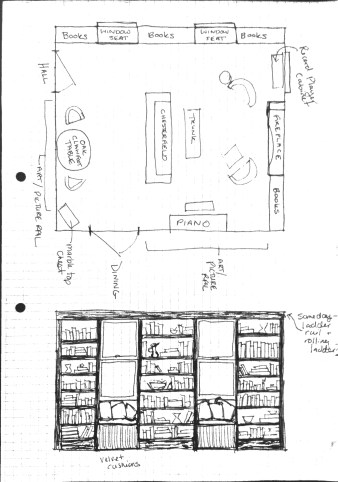 BOOKS
WINDOW
SEAT
BOOKS
WINDOW
SEAT
BOOKS
Record Player
Cabinet
HALL
CHESTERFIELD
TRUNK
FIREPLACE
BOOKS
OAK
CLAWFOOT
TABLE
ART/PICTURE RAIL
marble top
Chest
PIANO
DINING
ART/
PICTURE
RAIL
Someday -
ladder
rail +
rolling
ladder
velvet
cushions